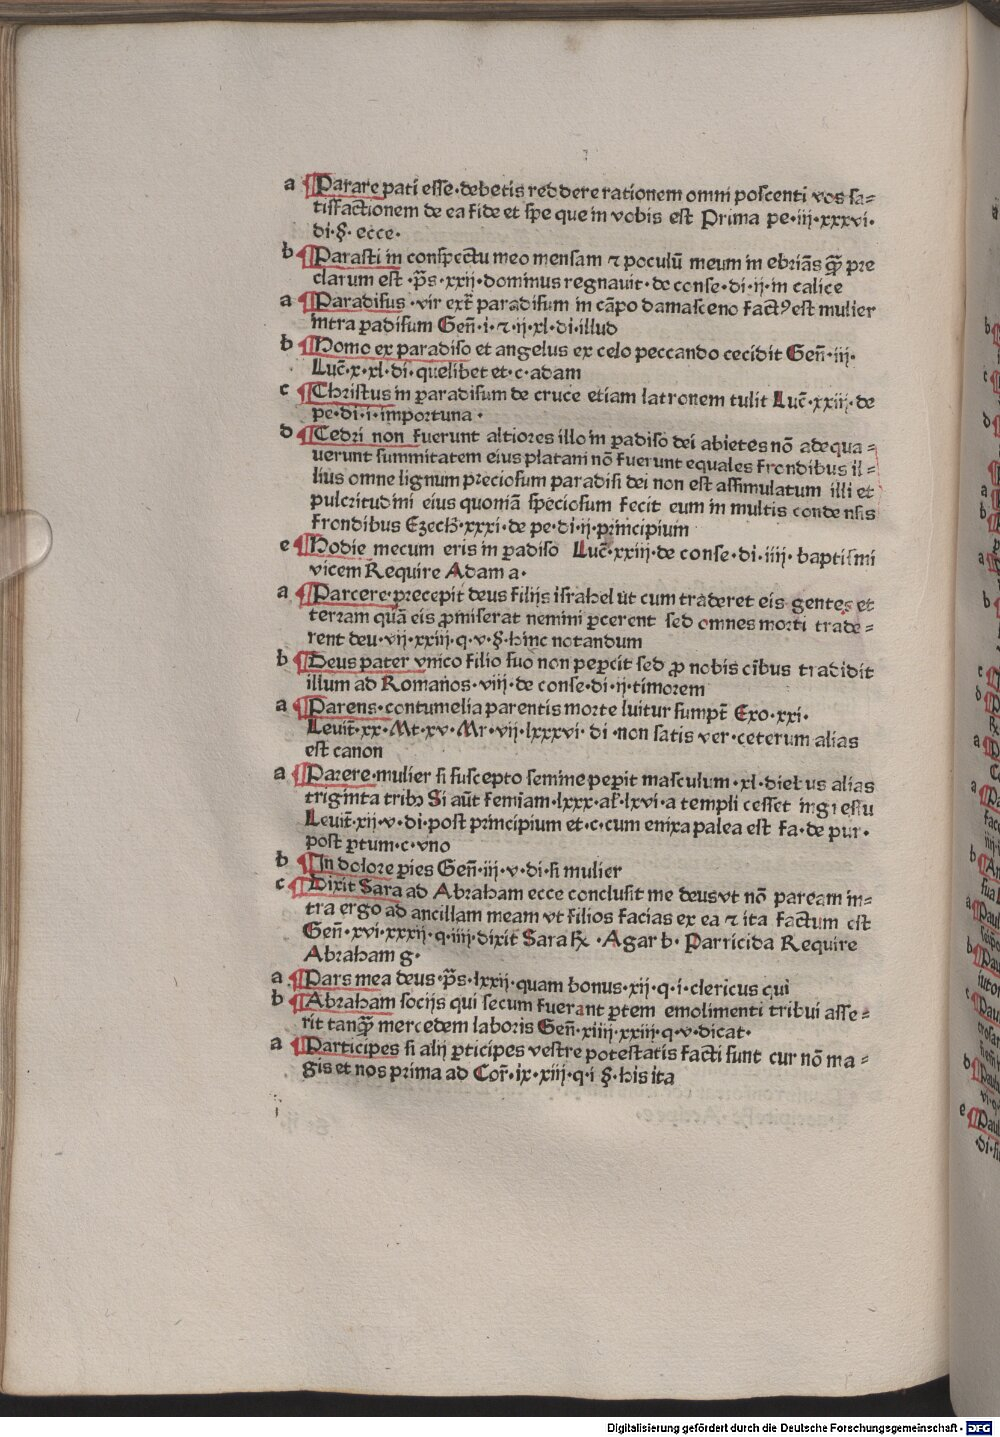 a ¶Parare pati esse·debetis reddere rationem omni poscenti vos sa=
tisfactionem de ea fide et spe que in vobis est Prima pe·iij·xxxvi·
di·§· ecce·
b ¶Parasti in conspectu meo mensam ⁊ poculū meum in ebriās q̄ꝫ pre
clarum est ·p̄s·xxij·dominus regnauit·de conse·di·ij·in calice
a ¶Paradisus ·vir ext̄ paradisum in cāpo damasceno factꝰ est mulier
intra ꝑadisum Geñ·i·⁊·ij·xl·di·illud
b ¶Homo ex paradiso et angelus ex celo peccando cecidit Geñ·iij·
Luc̄·x·xl·di·quelibet et·c·adam
c ¶Christus in ꝑaradisum de cruce etiam latronem tulit Luc̄·xxiij·de
pe·di·i·importuna·
d ¶Cedri non fuerunt altiores illo in ꝑadiso dei abietes nō adequa=
uerunt summitatem eius platani nō fuerunt equales frondibus il=
lius omne lignum preciosum paradisi dei non est assimulatum illi et
pulcritudini eius quoniā speciosum fecit eum in multis condensis
frondibus Ezech·xxxi·de pe·di·ij·principium
e ¶Hodie mecum eris in ꝑadiso Luc̄·xxiij·de conse·di·iiij·baptismi
vicem Require Adam a·
a ¶Parcere·precepit deus filijs israhel ut cum traderet eis gentes et
terram quā eis ꝓmiserat nemini ꝑcerent sed omnes morti trade=
rent deu·vij·xxiij·q·v·§·hinc notandum
b ¶Deus pater vnico filio suo non pepercit sed ꝓ nobis cībus tradidit
illum ad Romanos·viij·de conse·di·ij·timorem
a ¶Parens·contumelia parentis morte luitur sumpt̄ Exo·xxi·
Leuit̄·xx·Mt·xv·Mr·vij·lxxxvi· di·non satis ver·ceterum alias
est canon
a ¶Parere·mulier si suscepto semine peperit masculum·xl·diebus alias
triginta tribꝫ Si aūt femīam·lxxx·al̄·lxvi·a templi cesset ingressu
Leuit̄·xij·v·di·post principium et·c·cum enixa palea est fa·de pur·
post ꝑtum·c·vno
b ¶In dolore ꝑies Geñ·iij·v·di·si mulier
c ¶Dixit Sara ad Abraham ecce conclusit me deus vt nō paream in=
tra ergo ad ancillam meam vt filios facias ex ea ⁊ ita factum est
Geñ·xvi·xxxij·q·iiij·dixit Sara ℞ ·Agar b· Parricida Require
Abraham g·
a ¶Pars mea deus·p̄s·lxxij·quam bonus·xij·q·i·clericus qui
b ¶Abraham socijs qui secum fuerant ꝑtem emolimenti tribui asse=
rit tanq̄ꝫ mercedem laboris Geñ·xiiij·xxiij·q·v·dicat·
a ¶Participes si alij ꝑticipes vestre potestatis facti sunt cur nō ma=
gis et nos prima ad Cor̄·ix·xiij·q·i §·his ita
Digitalisierung gefördert durch die Deutsche Forschungsgemeinschaft · DFG